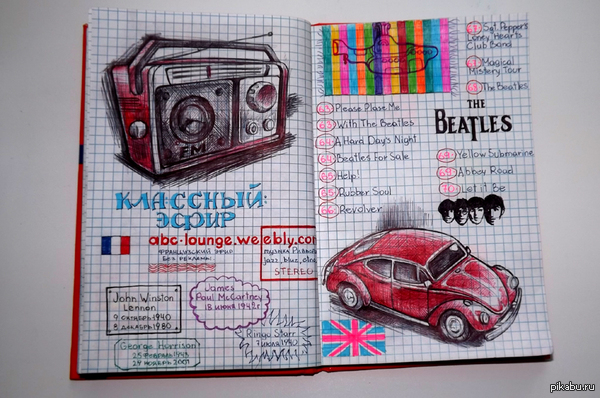 FM
КЛАССНЫЙ:
ЭФИР
abc-lounge.weebly.com
ФРАНЦУЗСКИЙ ЭФИР
БЕЗ РЕКЛАМЫ
МУЗЫКА
jazz, bluz,
STEREO
John Winston
Lennon
9 ОКТЯБРЬ 1940
8 ДЕКАБРЬ 1980
James
Paul McCartney
18 ИЮНЯ 1942г.
George Harrison
25 ФЕВРАЛЬ 1943
29 НОЯБРЬ 2001
Ringo Starr
7 ИЮЛЯ 1940
63 Please Plase Me
63 With The Beatles
64 A Hard Day's Night
64 Beatles For Sale
65 Help!
65 Rubber Soul
66 Revolver
67 Sgt. Pepper's
Loney Hearts
Club Band
67 Magical
Mistery Tour
68 The Beatles
THE
BEATLES
69 Yellow Submarine
69 Abbey Road
70 Let it Be
pikabu.ru